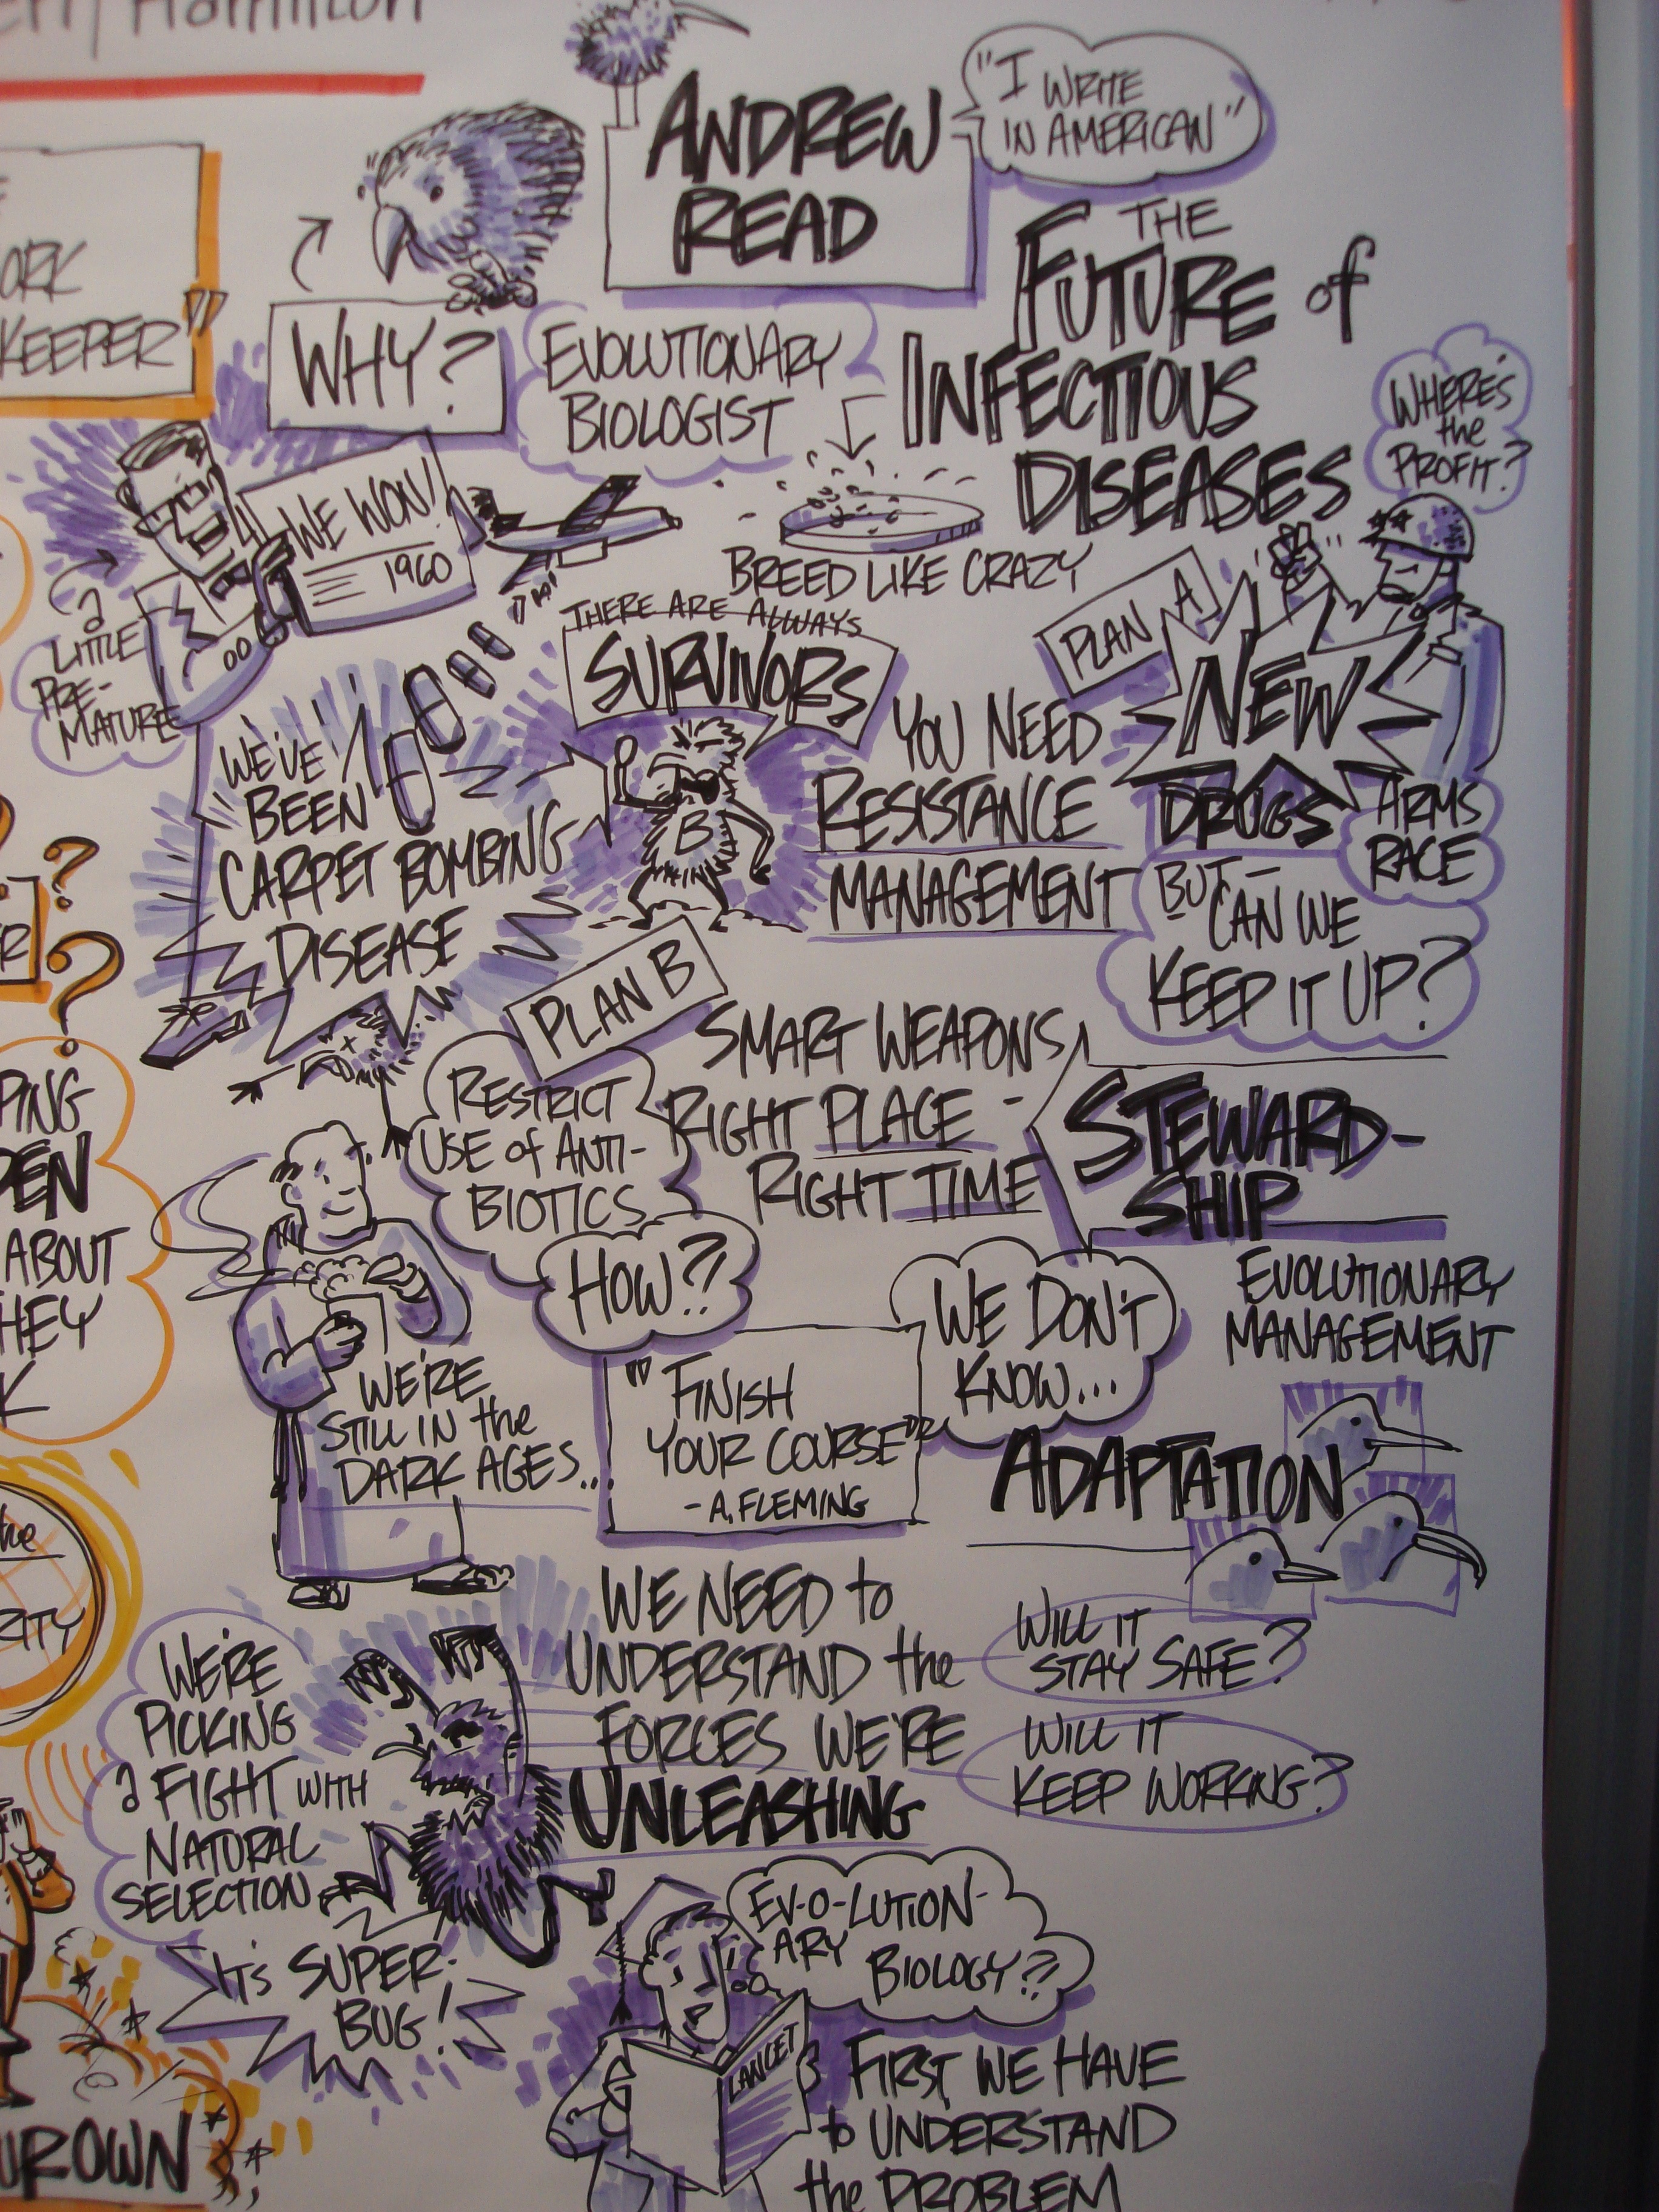 Hamilton
ORK
KEEPER"
ANDREW
READ
"I WRITE
IN AMERICAN"
THE
FUTURE of
INFECTIOUS
DISEASES
WHY?
EVOLUTIONARY
BIOLOGIST
WHERE'S
the
PROFIT?
WE WON!
1960
a
LITTLE
PRE-
MATURE
BREED LIKE CRAZY
THERE ARE ALWAYS
SURVIVORS
B
WE'VE
BEEN
CARPET BOMBING
DISEASE
YOU NEED
RESISTANCE
MANAGEMENT
PLAN A
NEW
DRUGS
ARMS
RACE
BUT-
CAN WE
KEEP IT UP?
PLAN B
RESTRICT
USE of ANTI-
BIOTICS
SMART WEAPONS
RIGHT PLACE -
RIGHT TIME
STEWARD-
SHIP
HOW?!
WE DON'T
KNOW...
EVOLUTIONARY
MANAGEMENT
WE'RE
STILL IN the
DARK AGES...
"FINISH
YOUR COURSE"
- A. FLEMING
ADAPTATION
WE NEED to
UNDERSTAND the
FORCES WE'RE
UNLEASHING
WILL IT
STAY SAFE?
WILL IT
KEEP WORKING?
WE'RE
PICKING
a FIGHT WITH
NATURAL
SELECTION
IT'S SUPER-
BUG!
EV-O-LUTION-
ARY
BIOLOGY??
LANCET
FIRST, WE HAVE
to UNDERSTAND
the PROBLEM
? ?
PING
DEN
ABOUT
HEY
K
the
RITY
UROWN